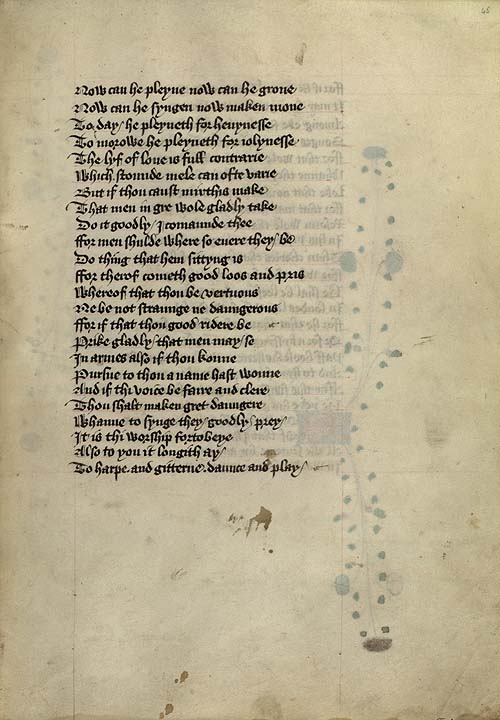 45
Now can he pleyne now can he grone
Now can he syngen now maken mone
To day / he pleyneth for heuynesse
To morowe he pleyneth for iolynesse
The lyf of loue is full contrarie
Which stounde mele can ofte varie
But if thou canst mirthis make
That men in gre wole gladly take
Do it goodly / I comaunde thee
ffor men shulde where so euere they / be
Do thing that hem sittyng is
ffor therof cometh good loos and pris
Whereof that thou be vertuous
Ne be not straunge ne daungerous
ffor if that thou good ridere be
Prike gladly / that men may / se
In armes also if thou konne
Pursue to thou a name hast wonne
And if thi voice be faire and clere
Thou shalt maken gret daungere
Whanne to synge they / goodly / prey /
It is thi worship fortobeye
Also to you it longith ay /
To harpe and gitterne daunce and play /